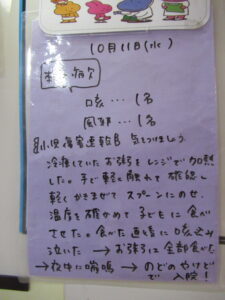 10月11日(水)
病欠
咳…1名
風邪…1名
小児傷害速報 気をつけましょう。
冷凍していたお粥をレンジで加熱
した。手で軽く触れて確認し
軽くかきまぜてスプーンにのせ、
温度を確かめて子どもに食べ
させた。食べた直後に咳込み
泣いた → お粥は全部食べた
→ 夜中に喘鳴 → のどのやけど
で入院!